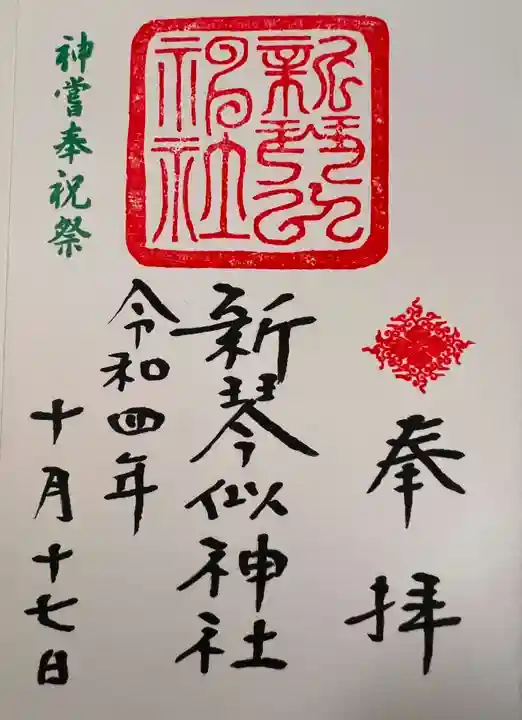 奉拝
新琴似
神社
新琴似神社
令和四年
十月十七日
神嘗奉祝祭